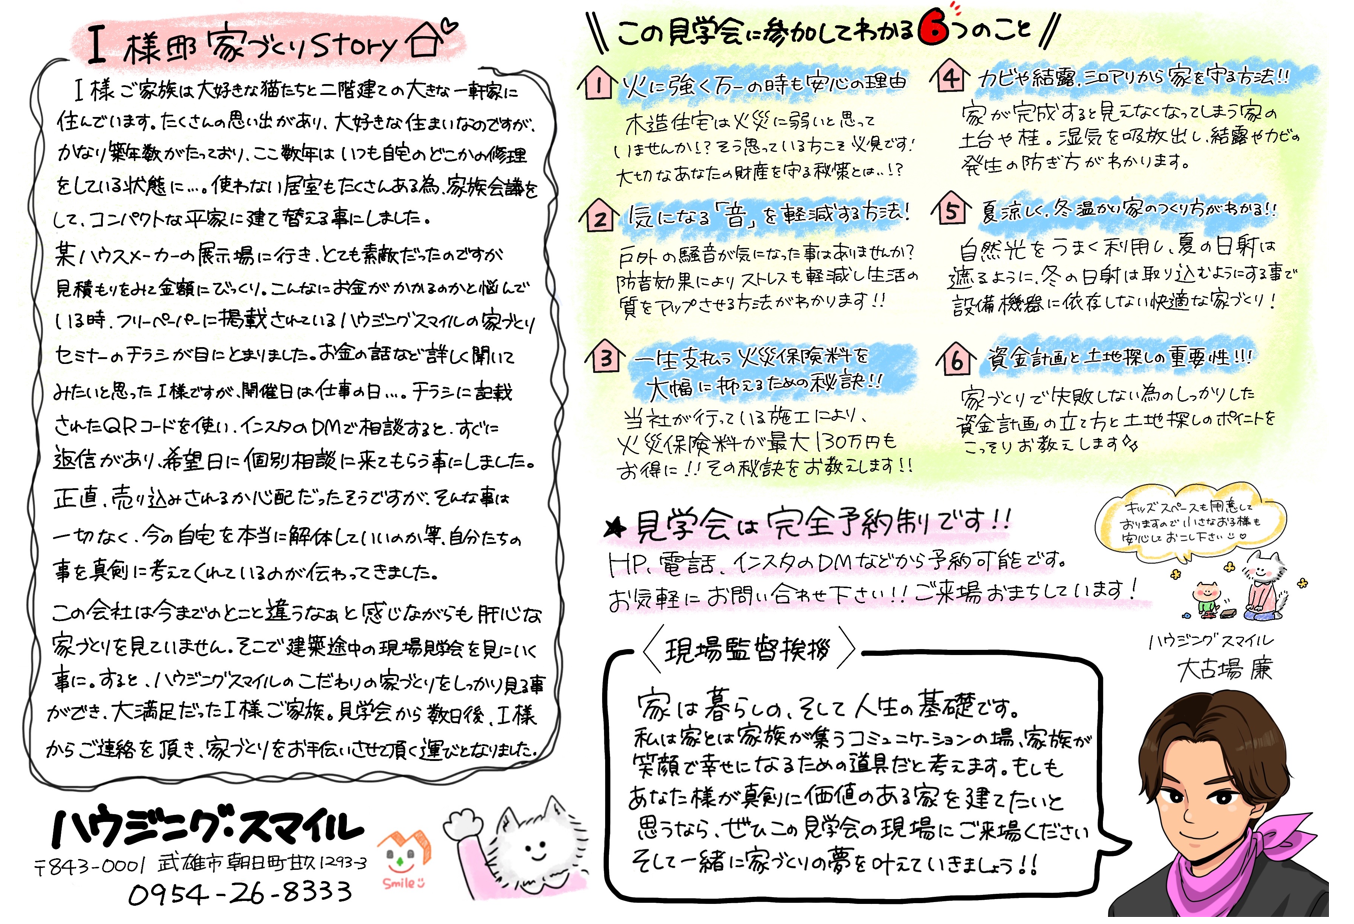 I様邸 家づくりStory
I様ご家族は大好きな猫たちと二階建ての大きな一軒家に
住んでいます。たくさんの思い出があり、大好きな住まいなのですが、
かなり築年数がたっており、ここ数年はいつも自宅のどこかの修理
をしている状態に…。使わない居室もたくさんある為、家族会議を
して、コンパクトな平家に建て替える事にしました。
某ハウスメーカーの展示場に行き、とても素敵だったのですが
見積もりをみて金額にびっくり。こんなにお金がかかるのかと悩んで
いる時、フリーペーパーに掲載されているハウジングスマイルの家づくり
セミナーのチラシが目にとまりました。お金の話など詳しく聞いて
みたいと思ったI様ですが、開催日は仕事の日…。チラシに記載
されたQRコードを使い、インスタのDMで相談すると、すぐに
返信があり、希望日に個別相談に来てもらう事にしました。
正直、売り込みされるか心配だったそうですが、そんな事は
一切なく、今の自宅を本当に解体していいのか等、自分たちの
事を真剣に考えてくれているのが伝わってきました。
この会社は今までのとこと違うなぁと感じながらも肝心な
家づくりを見ていません。そこで建築途中の現場見学会を見にいく
事に。すると、ハウジングスマイルのこだわりの家づくりをしっかり見る事
ができ、大満足だったI様ご家族。見学会から数日後、I様
からご連絡を頂き、家づくりをお手伝いさせて頂く運びとなりました。
ハウジング・スマイル
〒843-0001 武雄市朝日町甘久1293-3
0954-26-8333
Smile
この見学会に参加してわかる6つのこと
1 火に強く万一の時も安心の理由
木造住宅は火災に弱いと思って
いませんか!?そう思っている方こそ必見です!
大切なあなたの財産を守る秘策とは..!?
2 気になる「音」を軽減する方法!
戸外の騒音が気になった事はありませんか?
防音効果によりストレスも軽減し生活の
質をアップさせる方法がわかります!!
3 一生支払う火災保険料を
大幅に抑えるための秘訣!!
当社が行っている施工により、
火災保険料が最大130万円も
お得に!!その秘訣をお教えします!!
4 カビや結露、シロアリから家を守る方法!!
家が完成すると見えなくなってしまう家の
土台や柱。湿気を吸放出し、結露やカビの
発生の防ぎ方がわかります。
5 夏涼しく、冬温かい家のつくり方がわかる!!
自然光をうまく利用し、夏の日射は
遮るように、冬の日射は取り込むようにする事で
設備機器に依存しない快適な家づくり!
6 資金計画と土地探しの重要性!!!
家づくりで失敗しない為のしっかりした
資金計画の立て方と土地探しのポイントを
こっそりお教えします
★見学会は完全予約制です!!
HP、電話、インスタのDMなどから予約可能です。
お気軽にお問い合わせ下さい!!ご来場おまちしています!
キッズスペースも用意して
おりますので小さなお子様も
安心しておこし下さい♡
ハウジングスマイル
大古場 廉
〈現場監督挨拶〉
家は暮らしの、そして人生の基礎です。
私は家とは家族が集うコミュニケーションの場、家族が
笑顔で幸せになるための道具だと考えます。もしも
あなた様が真剣に価値のある家を建てたいと
思うなら、ぜひこの見学会の現場にご来場ください
そして一緒に家づくりの夢を叶えていきましょう!!